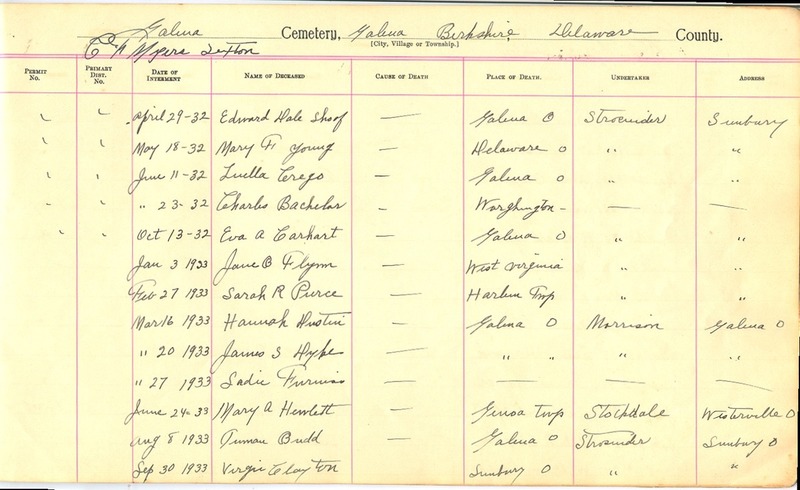 Galena Cemetery, Galena Berkshire, Delaware County.
[City, Village or Township.]
Myers Sexton
Permit No. Primary Dist. No. Date of Interment Name of Deceased Cause of Death Place of Death. Undertaker Address
" " April 29-32 Edward Dale Shoof — Galena O Stroender Sunbury
" " May 18-32 Mary F Young — Delaware O " "
" " June 11-32 Luella Crego — Galena O " "
" " " 23-32 Charles Bachelor — Worghington — — —
" " Oct 13-32 Eva A Carhart — Galena O " "
Jan 3 1933 Jane O Flynn — West Virginia " "
Feb 27 1933 Sarah R Pierce — Harlem Twp " "
Mar 16 1933 Hannah Dustin — Galena O Morrison Galena O
" 20 1933 James S Dyke — " " " "
" 27 1933 Sadie Furniss — — — —
June 24-33 Mary A Hewlett — Genoa twp Stockdale Westerville O
Aug 8 1933 Truman Budd — Galena O Stroender Sunbury O
Sep 30 1933 Virgil Clayton Sunbury O " "